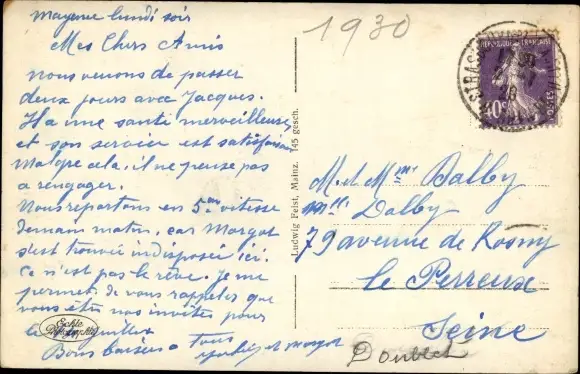 Mayence lundi soir
Mes Chers Amis
nous venons de passer
deux jours avec Jacques.
Il a une santé merveilleuse,
et son service est satisfaisant
Malgré cela, il ne pense pas
a rengager.
Nous repartons en 5ème vitesse
demain matin, car Margot
s'est trouvée indisposée ici.
Ce n'est pas le rêve. Je me
permet de vous rappeler que
vous êtes nos invités pour
le juillet
Bons baisers a tous
et Margot
Echte
Photographie
145 gesch.
Ludwig Feist, Mainz.
1930
REPUBLIQUE FRANÇAISE
40c
POSTES
STRASB
M. et Mme Dalby
Mlle Dalby
79 avenue de Rosny
le Perreux
Seine
Doublet